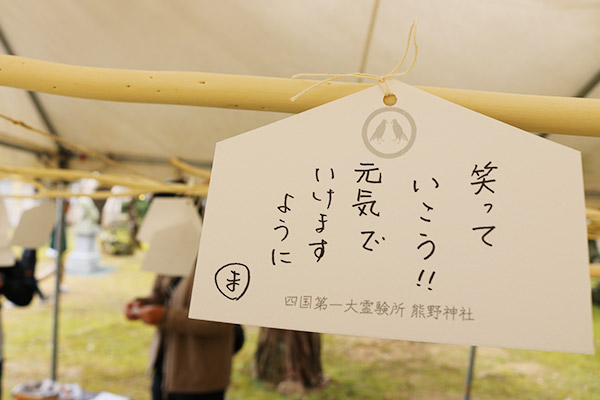 笑って
いこう!!
元気で
いけます
ように
ま
四国第一大霊験所 熊野神社